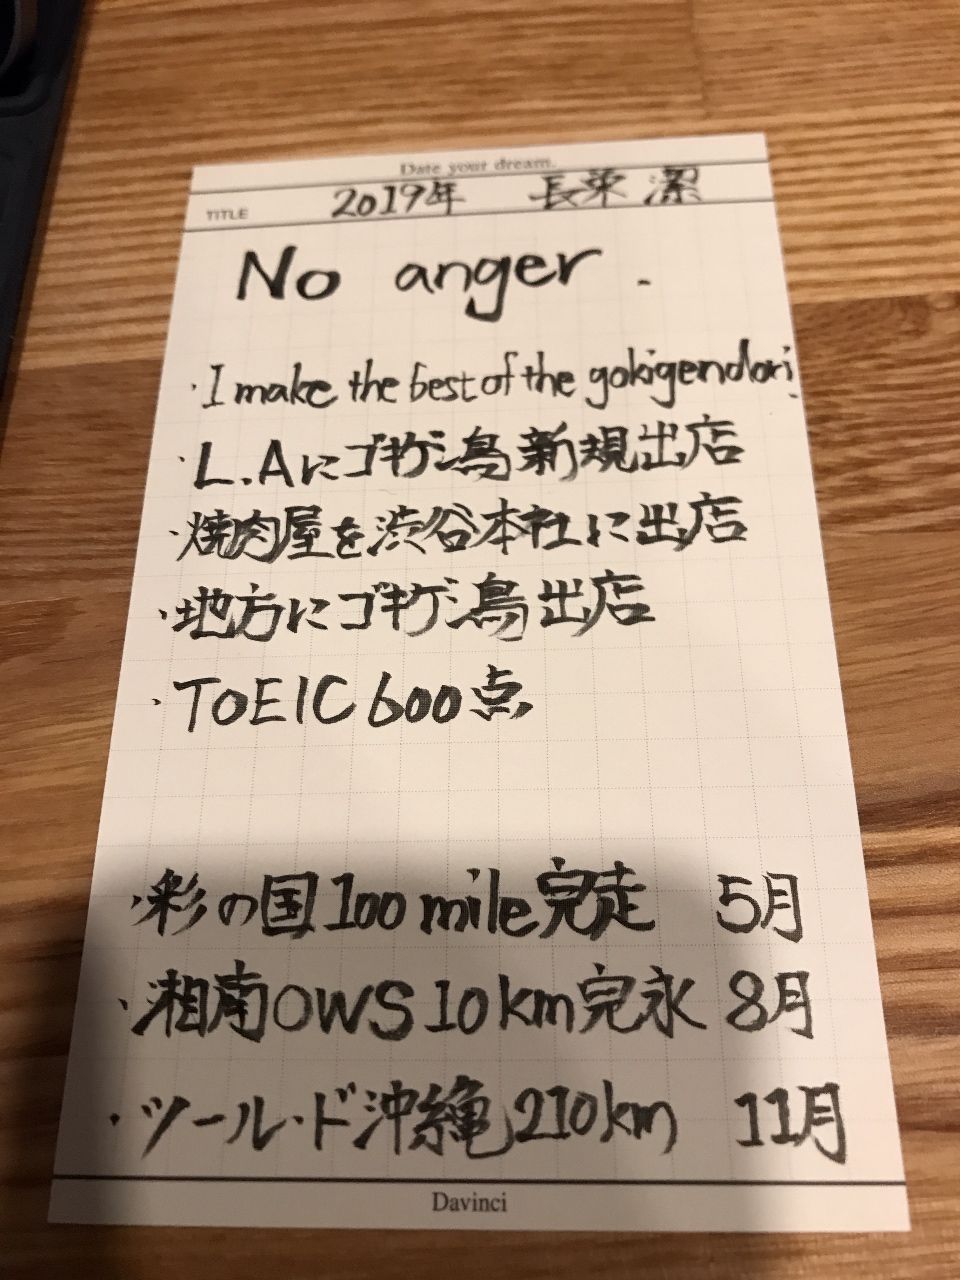 Date your dream.
TITLE 2019年 長束 潔
No anger.
・I make the best of the gokigendori.
・L.Aにゴキゲン鳥新規出店
・焼肉屋を渋谷本社に出店
・地方にゴキゲン鳥出店
・TOEIC 600点
・彩の国100mile完走 5月
・湘南OWS10km完泳 8月
・ツール・ド沖縄210km 11月
Davinci